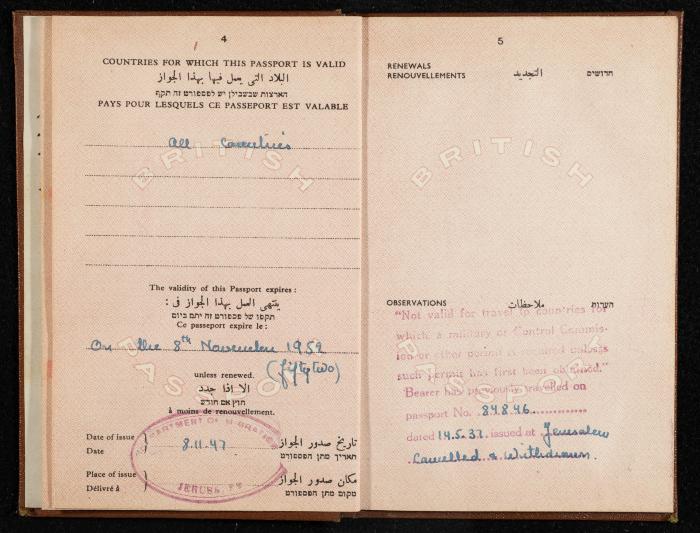 4
COUNTRIES FOR WHICH THIS PASSPORT IS VALID
البلاد التى يعمل فيها بهذا الجواز
הארצות שבשבילן יש לפספורט זה תקף
PAYS POUR LESQUELS CE PASSEPORT EST VALABLE
All Countries
BRITISH
The validity of this Passport expires :
ينتهى العمل بهذا الجواز فى :
תקפו של פספורט זה יתם ביום
Ce passeport expire le :
On the 8th November 1952
(fifty two)
PASSPORT
unless renewed.
الا اذا جدد
חוץ אם חודש
à moins de renouvellement.
DEPARTMENT OF MIGRATION
Date of issue
Date
8.11.47
تاريخ صدور الجواز
תאריך מתן הפספורט
Place of issue
Délivré à
JERUSALEM
مكان صدور الجواز
מקום מתן הפספורט
5
RENEWALS
RENOUVELLEMENTS
التجديد
חדושים
BRITISH
OBSERVATIONS
ملاحظات
הערות
"Not valid for travel to countries for
which a military or Control Commis-
sion or other permit is required unless
such permit has first been obtained."
PASSPORT
Bearer has previously travelled on
passport No. 84846
dated 14.5.37. issued at Jerusalem
Cancelled & Withdrawn.